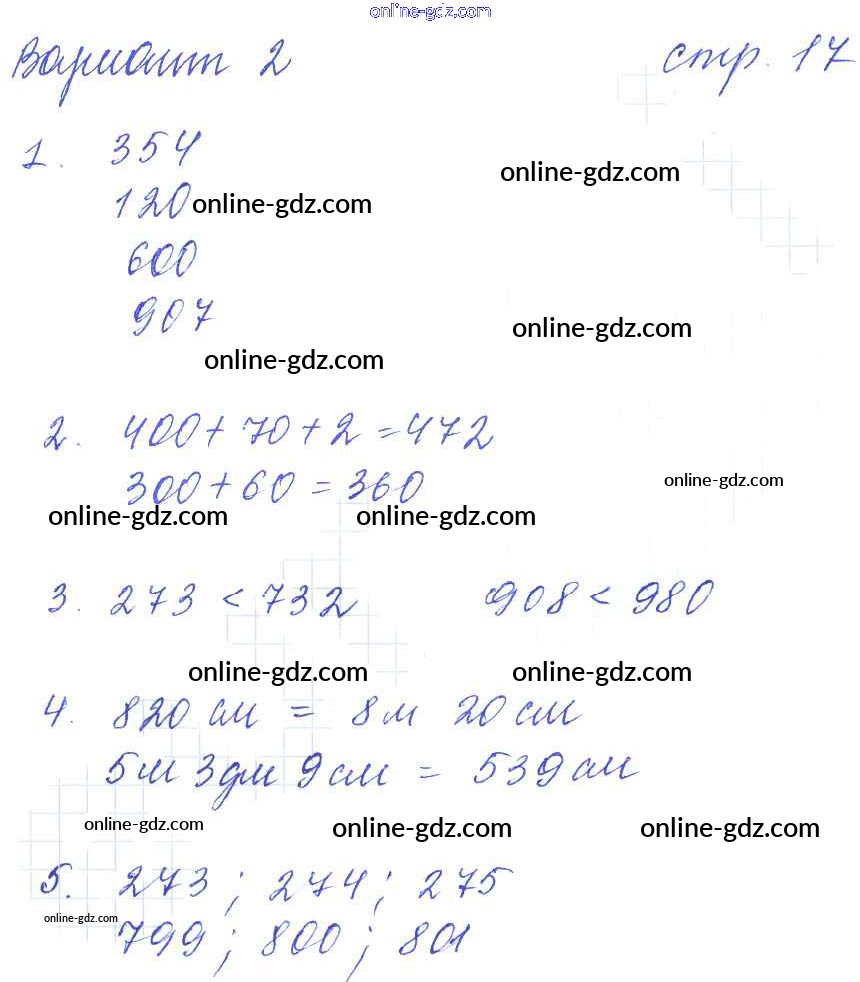 online-gdz.com
Вариант 2 стр. 17
1. 354
online-gdz.com
120
online-gdz.com
600
907
online-gdz.com
online-gdz.com
2. 400 + 70 + 2 = 472
300 + 60 = 360
online-gdz.com
online-gdz.com online-gdz.com
3. 273 < 732 908 < 980
online-gdz.com online-gdz.com
4. 820 см = 8 м 20 см
5 м 3 дм 9 см = 539 см
online-gdz.com online-gdz.com online-gdz.com
5. 273 ; 274 ; 275
online-gdz.com
799 ; 800 ; 801